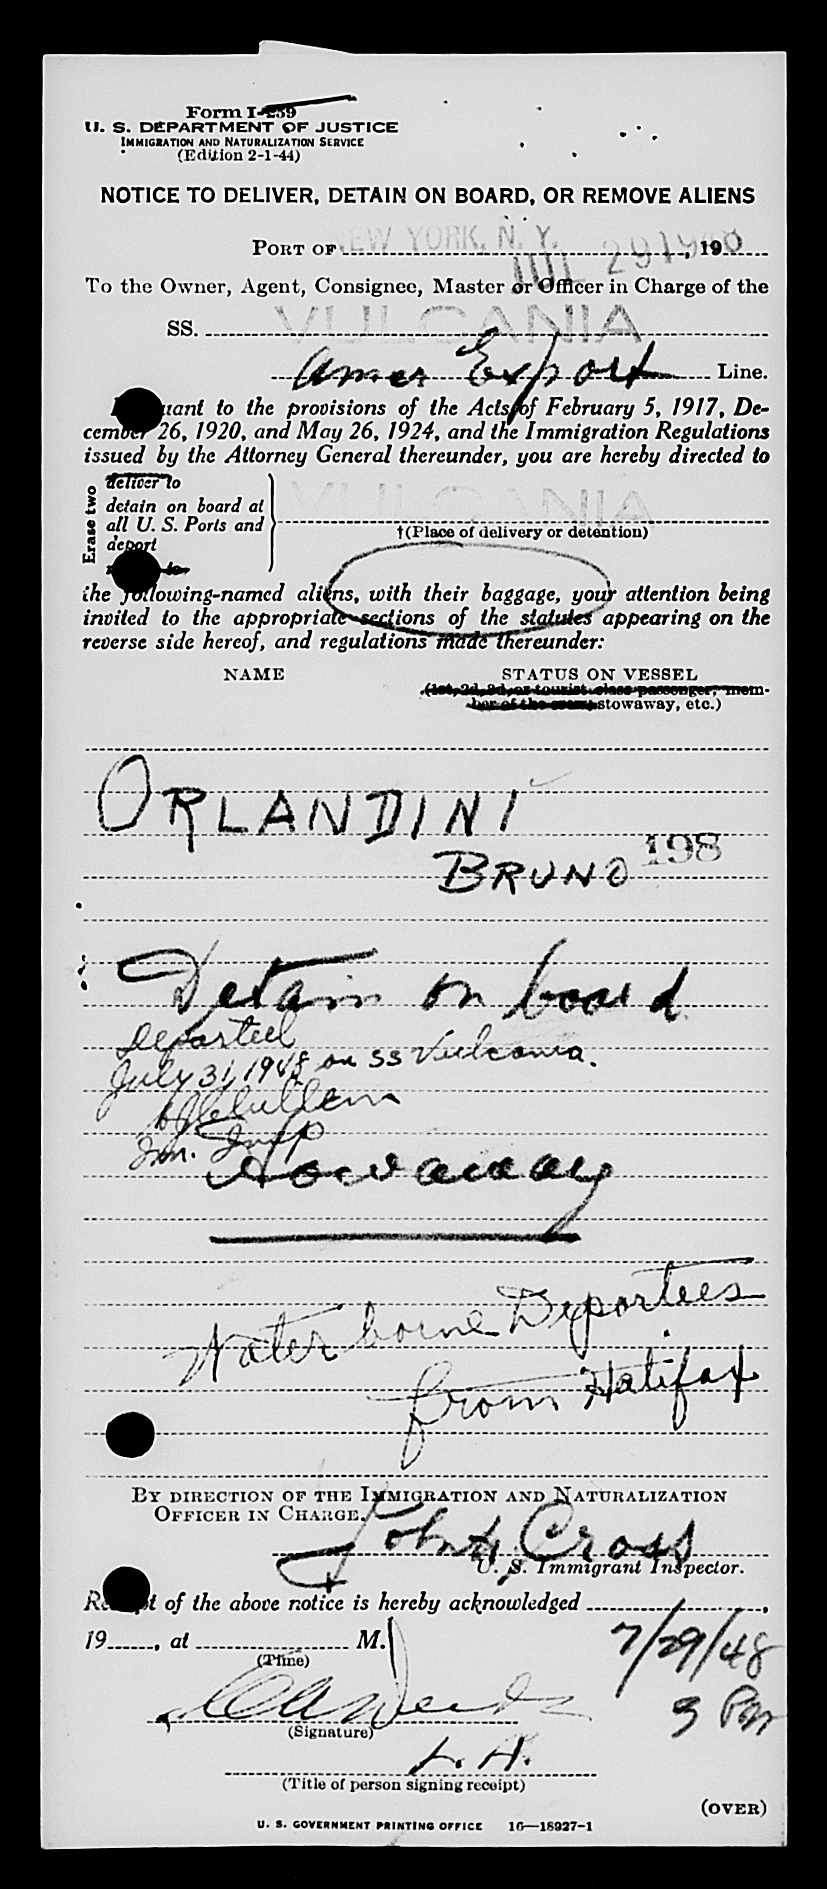 Form I-259
U. S. DEPARTMENT OF JUSTICE
IMMIGRATION AND NATURALIZATION SERVICE
(Edition 2-1-44)
NOTICE TO DELIVER, DETAIN ON BOARD, OR REMOVE ALIENS
PORT OF NEW YORK, N. Y. JUL 29 1948, 19
To the Owner, Agent, Consignee, Master or Officer in Charge of the
SS. VULCANIA
Amer Export Line.
Pursuant to the provisions of the Acts of February 5, 1917, De-
cember 26, 1920, and May 26, 1924, and the Immigration Regulations
issued by the Attorney General thereunder, you are hereby directed to
Erase two
deliver to
detain on board at
all U. S. Ports and
deport
VULCANIA
†(Place of delivery or detention)
the following-named aliens, with their baggage, your attention being
invited to the appropriate sections of the statutes appearing on the
reverse side hereof, and regulations made thereunder:
NAME STATUS ON VESSEL
(1st, 2d, 3d, or tourist class passenger, mem-
ber of the crew, stowaway, etc.)
ORLANDINI
BRUNO 198
Detain on board
Departed
July 31, 1948 on SS Vulcania.
Im. Insp
Stowaway
Water borne Deportees
from Halifax
BY DIRECTION OF THE IMMIGRATION AND NATURALIZATION
OFFICER IN CHARGE.
John H Cross
U. S. Immigrant Inspector.
Receipt of the above notice is hereby acknowledged ,
19 , at M. 7/29/48
(Time)
3 Pm
(Signature)
(Title of person signing receipt)
(OVER)
U. S. GOVERNMENT PRINTING OFFICE 16—18927-1